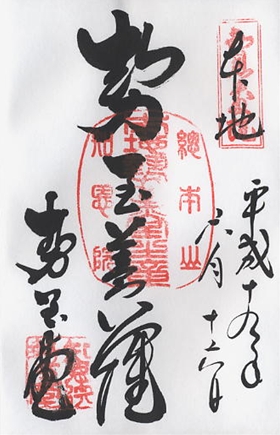 本地
平成十九年
六月
十六日
勢至菩薩
勢至堂
總本山
知恩院